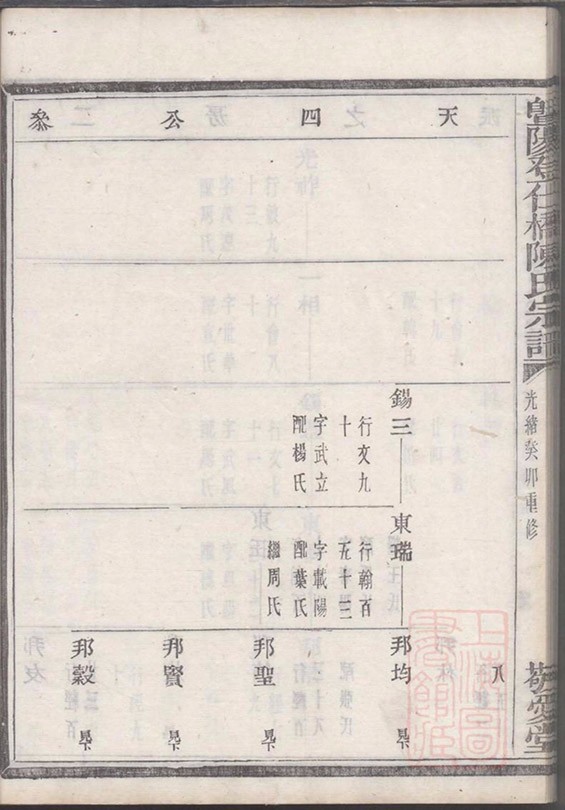 暨陽
橋陳氏宗譜
光緒癸卯重修
八
敬愛堂
天四公叅
錫三
行文九
十
字武立
配楊氏
東瑞
行翰百
五十三
字載陽
配葉氏
繼周氏
邦均
邦聖
邦賢
邦穀
上海圖
書館藏